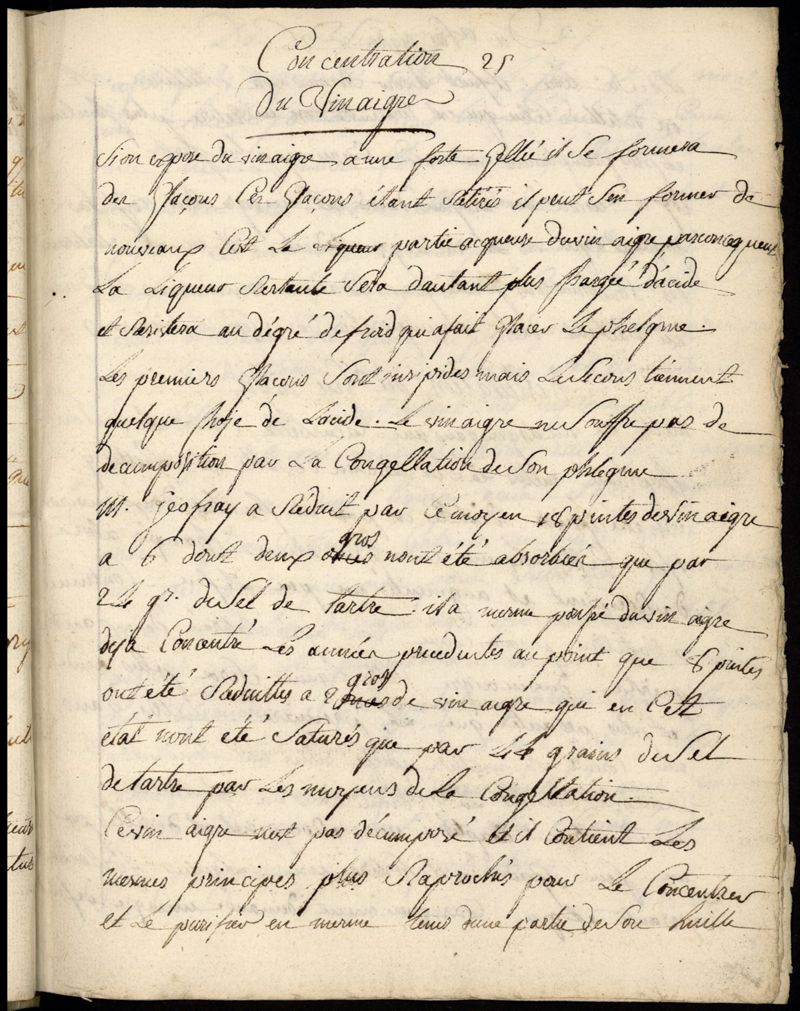 Concentration 25
Du Vinaigre
Si on expose du vinaigre a une forte Gellée il se formera
des Glaçons Ces Glaçons étant Retirés il peut s'en former de
nouveaux C'est La partie acqueuse du vin aigre par consequent
La Liqueur Restante sera dautant plus chargée d'acide
et Resistera au dégré de froid qui a fait Glacer Le phelgme.
Les premiers Glacons sont insipides mais Les seconds tiennent
quelque choje de L'acide. Le vin aigre ne souffre pas de
decomposition par La Congellation de son phlegme
M. jeofray a Reduit par ce moyen 18 pintes de vin aigre
a 6 dont deux gros n'ont été absorbées que par
24 gr. du Sel de tartre. il a meme poussé du vin aigre
deja Concentré Les années precedentes au point que 8 pintes
ont été Reduittes a 2 gros de vin aigre qui en C'et
état n'ont été Saturés que par 44 grains du Sel
de tartre par Les moyens de La Congellation.
Ce vin aigre n'est pas décomposé et il Contient Les
memes principes plus Raprochés pour Le Concentrer
et Le purifier en meme tems d'une partie de son huille